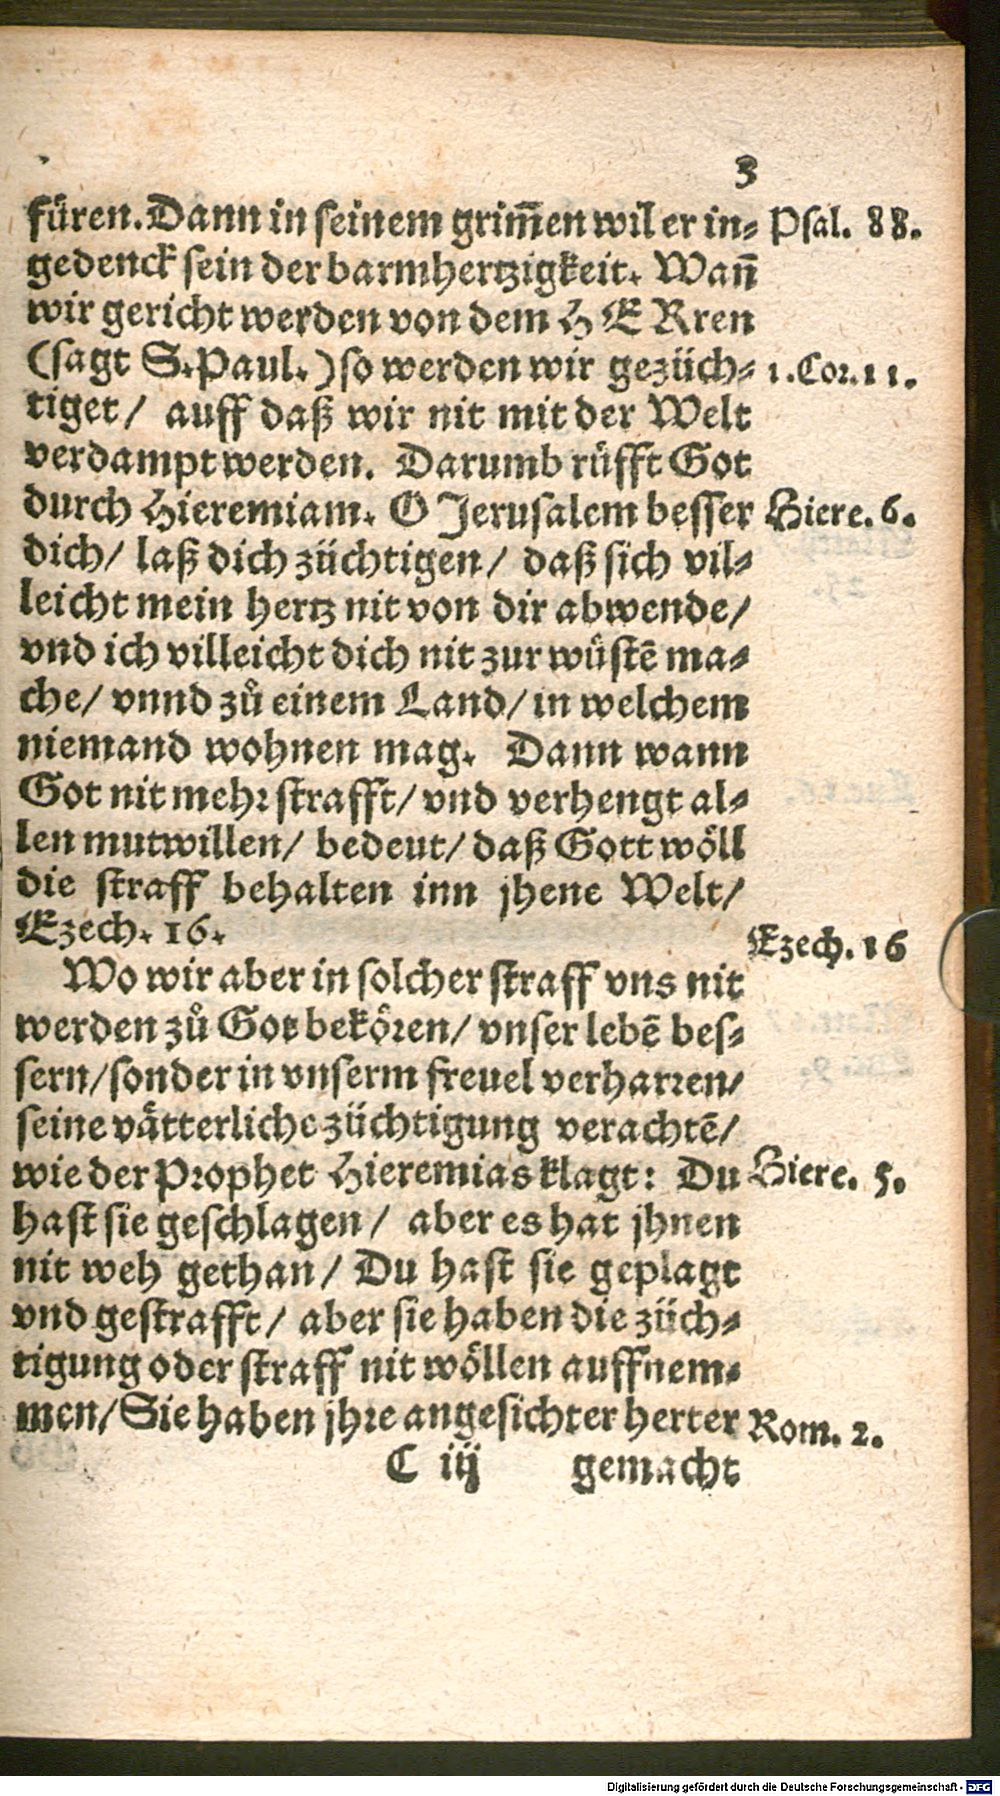 3
füren. Dann in seinem grim̄en wil er in⸗ Psal. 88.
gedenck sein der barmhertzigkeit. Wañ
wir gericht werden von dem HERren
(sagt S. Paul.) so werden wir gezüch⸗ 1. Cor. 11.
tiget/ auff daß wir nit mit der Welt
verdampt werden. Darumb rüfft Got
durch Hieremiam. O Jerusalem besser Hiere. 6.
dich/ laß dich züchtigen/ daß sich vil⸗
leicht mein hertz nit von dir abwende/
vnd ich villeicht dich nit zur wüstē ma⸗
che/ vnnd zů einem Land/ in welchem
niemand wohnen mag. Dann wann
Got nit mehr strafft/ vnd verhengt al⸗
len mutwillen/ bedeut/ daß Gott wöll
die straff behalten inn jhene Welt/
Ezech. 16. Ezech. 16
Wo wir aber in solcher straff vns nit
werden zů Got bekören/ vnser lebē bes⸗
sern/ sonder in vnserm freuel verharren/
seine vätterliche züchtigung verachtē/
wie der Prophet Hieremias klagt: Du Hiere. 5.
hast sie geschlagen/ aber es hat jhnen
nit weh gethan/ Du hast sie geplagt
vnd gestrafft/ aber sie haben die züch⸗
tigung oder straff nit wöllen auffnem⸗
men/ Sie haben jhre angesichter herter Rom. 2.
C iij gemacht
Digitalisierung gefördert durch die Deutsche Forschungsgemeinschaft - DFG